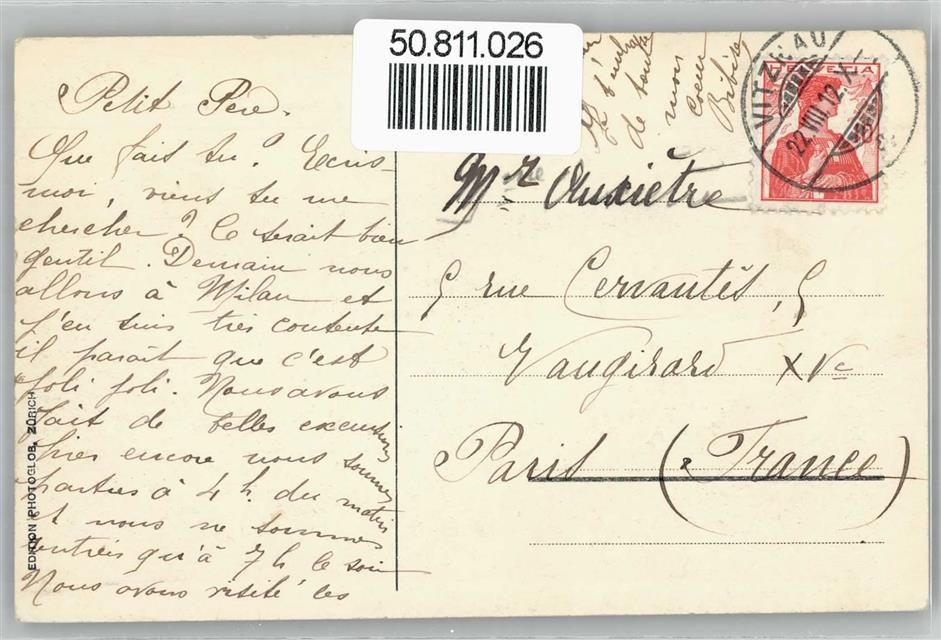 50.811.026
Petit Père.
Que fais tu? Ecris-
moi, viens tu me
chercher? Ce serait bien
gentil. Demain nous
allons à Milan et
j'en suis très contente
il paraît que c'est
joli joli. Nous avons
fait de belles excursions
hier encore nous sommes
parties à 4 h. du matin
et nous ne sommes
rentrés qu'à 7 h le soir
Nous avons visité les
de tout
mon
cœur
Bibise
VITZNAU
22.VIII.12.X
HELVETIA
Mr Auxiètre
5 rue Cervantès, 5
Vaugirard XVe
Paris (France)
EDITION PHOTOGLOB, ZÜRICH